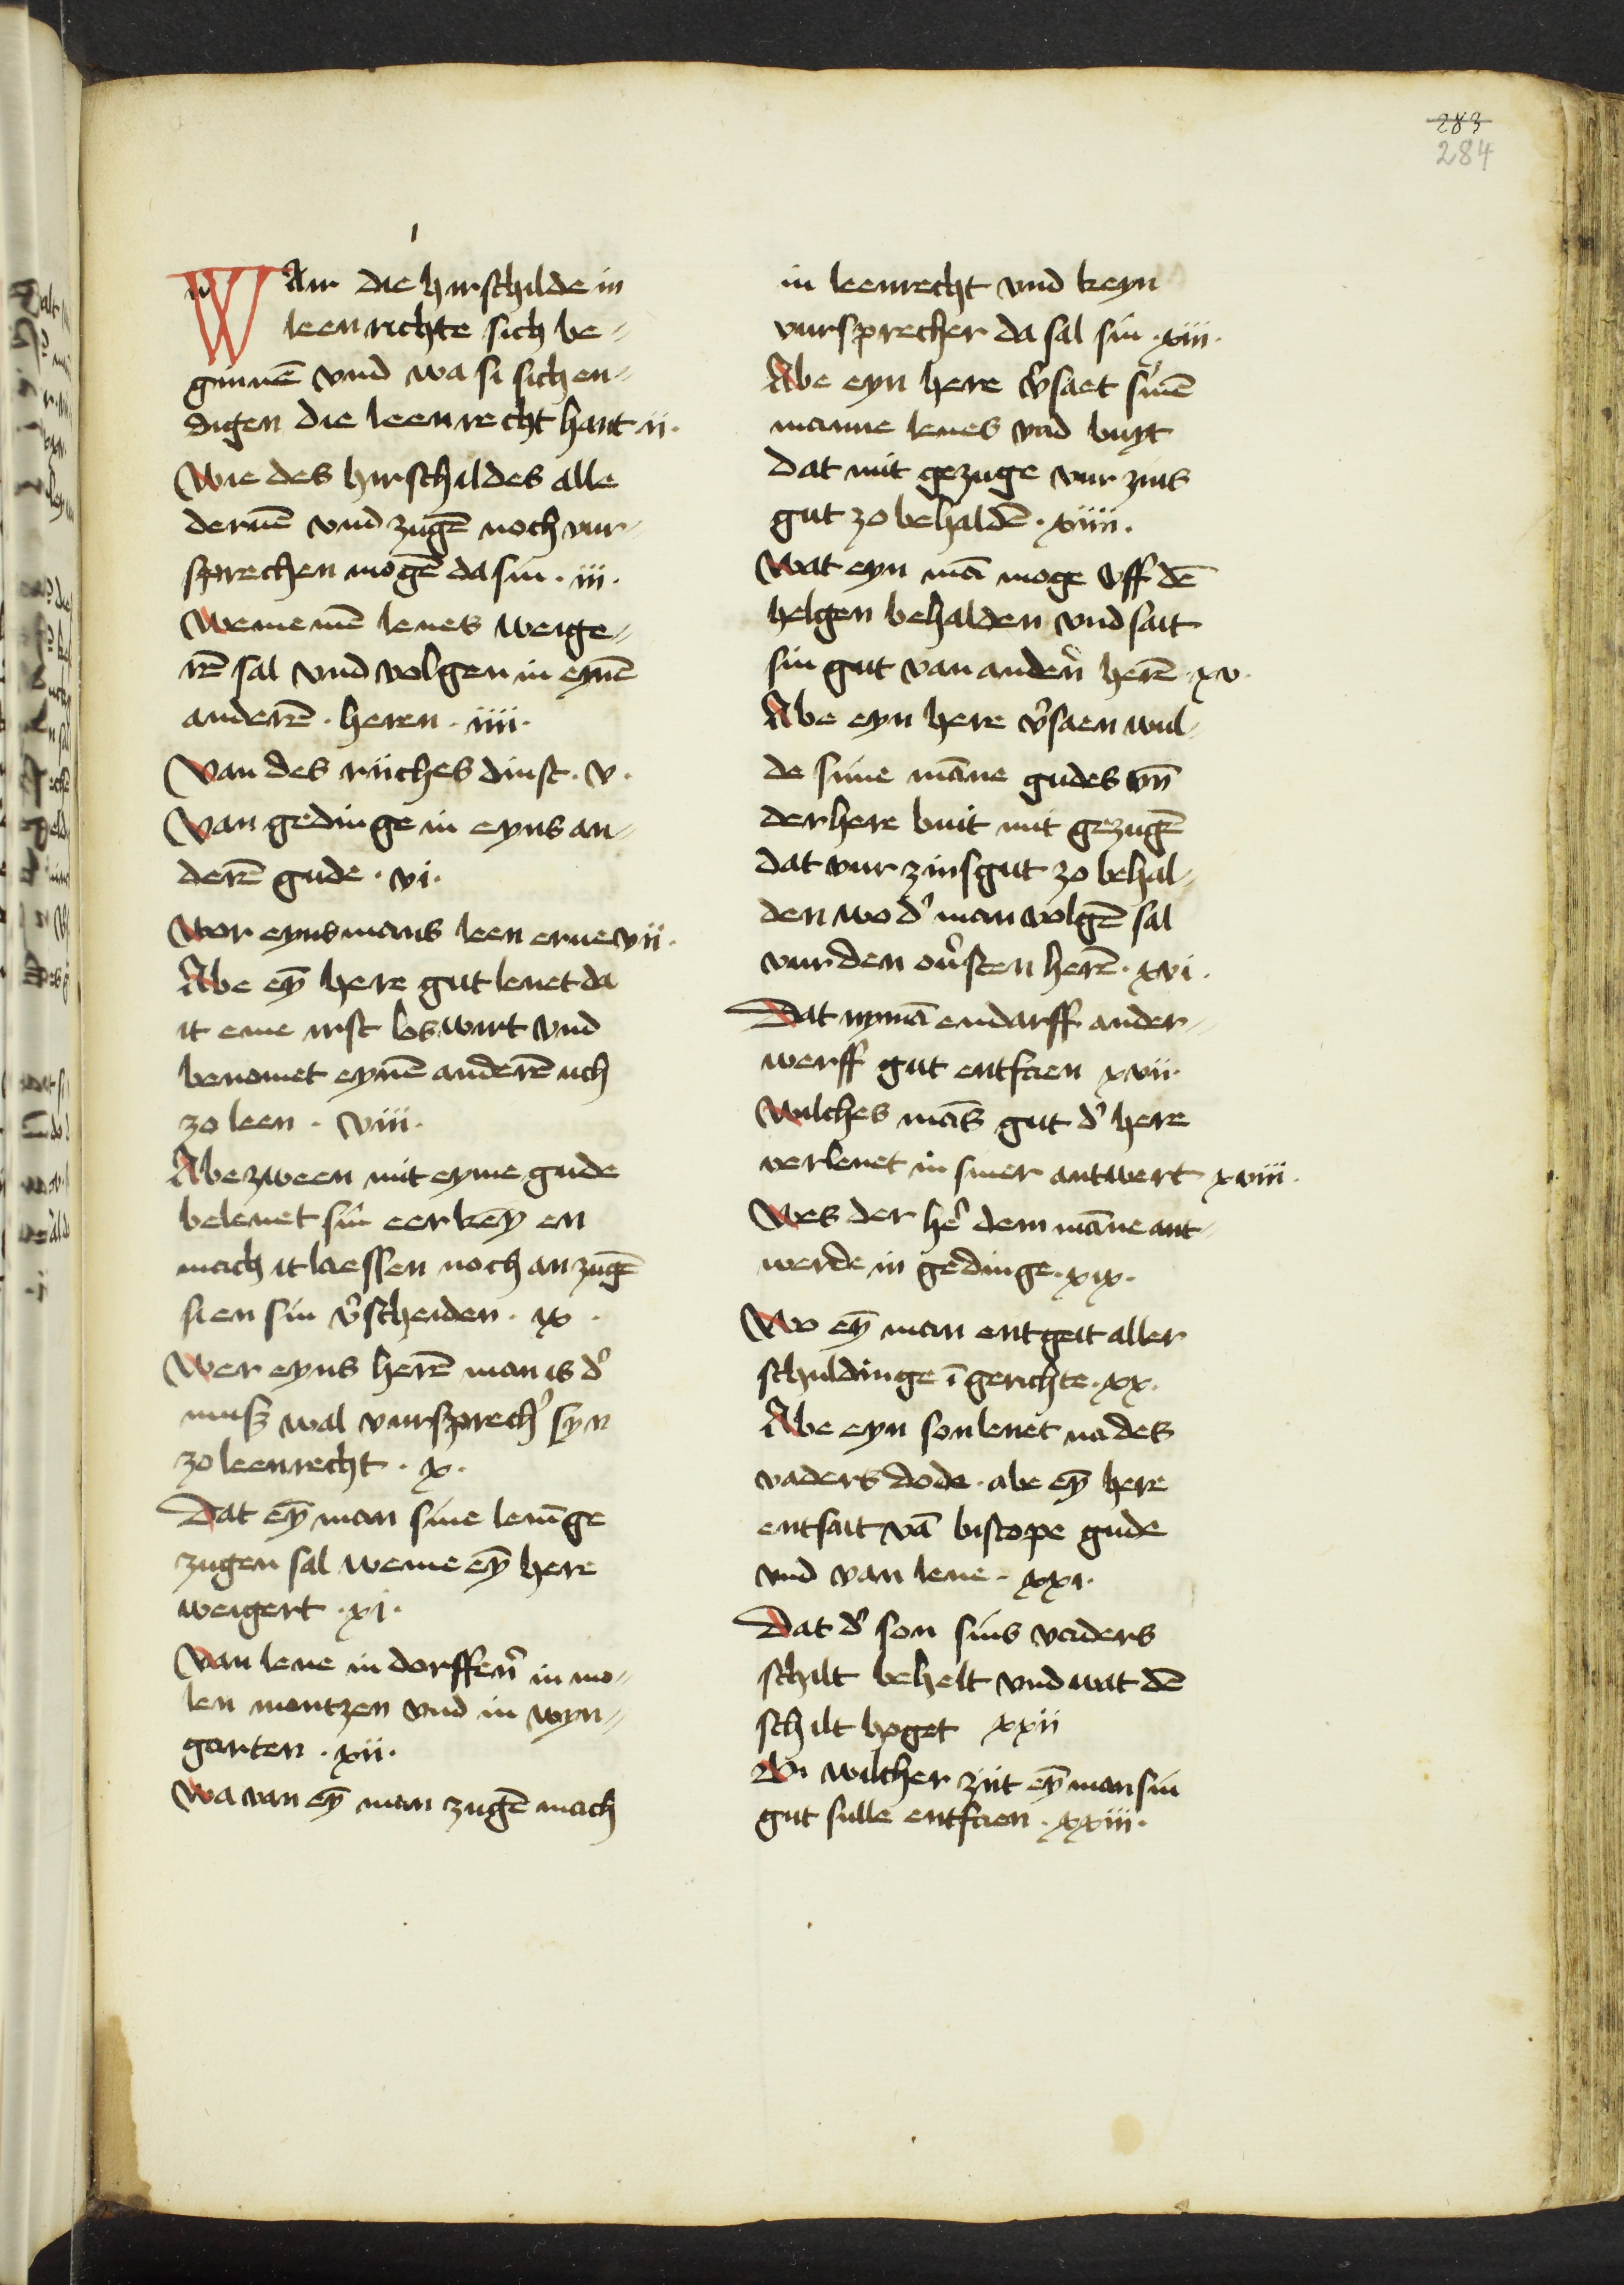 283
284
i
WAir die hirschilde in
leenrichte sich be-
ginnē vnd wa si sich en-
digen die leenrecht hant ii.
Wie des hirschildes alle
deruē vnd zugē noch vur-
sprechen mogē da sin . iii.
Weme mē lenes weige-
rē sal vnd volgen in eynē
anderē . heren . iiii.
Van des riiches dinst . v.
Van gedinge in eyns an-
derē gude . vi.
Wer eyns mans leen erue vii.
Abe ey̅ here gut lenet da
it eme irst los wirt vnd
benomet eynē anderē uch
zo leen . viii.
Abe zween mit eyme gude
belenet sin eer key̅ en
mach it laessen noch an zugē
si en sin v᾽scheiden . ix .
Wer eyns herē man is d᾽
muß wal vursprech᾽ syn
zo leenrecht . x .
Dat ey̅ man sine lenūge
zugen sal weme ey̅ here
weigert . xi .
Van lene in dorffen᾽ in mo-
len montzen vnd in wyn-
garten . xii.
Wa van ey̅ man zugē mach
in leenrecht vnd keyn
vursprecher da sal sin . xiii.
Abe eyn here v᾽saet sinē
manne lenes vnd buyt
dat mit gezuge vur zins
gut zo behaldē . xiiii.
Wat eyn mā moge vff dē
helgen behalden vnd sait
sin gut van anden᾽ herē . xv.
Abe eyn here v᾽saen wul-
de sine māne gudes vn̄
der here buit mit gezugē
dat vur zinsgut zo behal-
den wo d᾽ man volgē sal
vur den ou᾽sten herē . xvi .
Dat nymā endarff ander-
werff gut entfaen xvii.
Wilches mās gut d᾽ here
verlenet in siner antwert xviii.
Wes der he᾽ dem māne ant-
werde in gedinge . xix .
Wo ey̅ man entgeit aller
schuldinge ī gerichte . xx.
Abe eyn son lenet na des
vaders dode . abe ey̅ here
entfait vā biscope gude
vnd van lene . xxi.
Dat d᾽ son sins vaders
schilt behelt vnd wat dē
schilt hoget xxii
Zu wilcher ziit ey̅ man sin
gut sulle entfaen . xxiii.